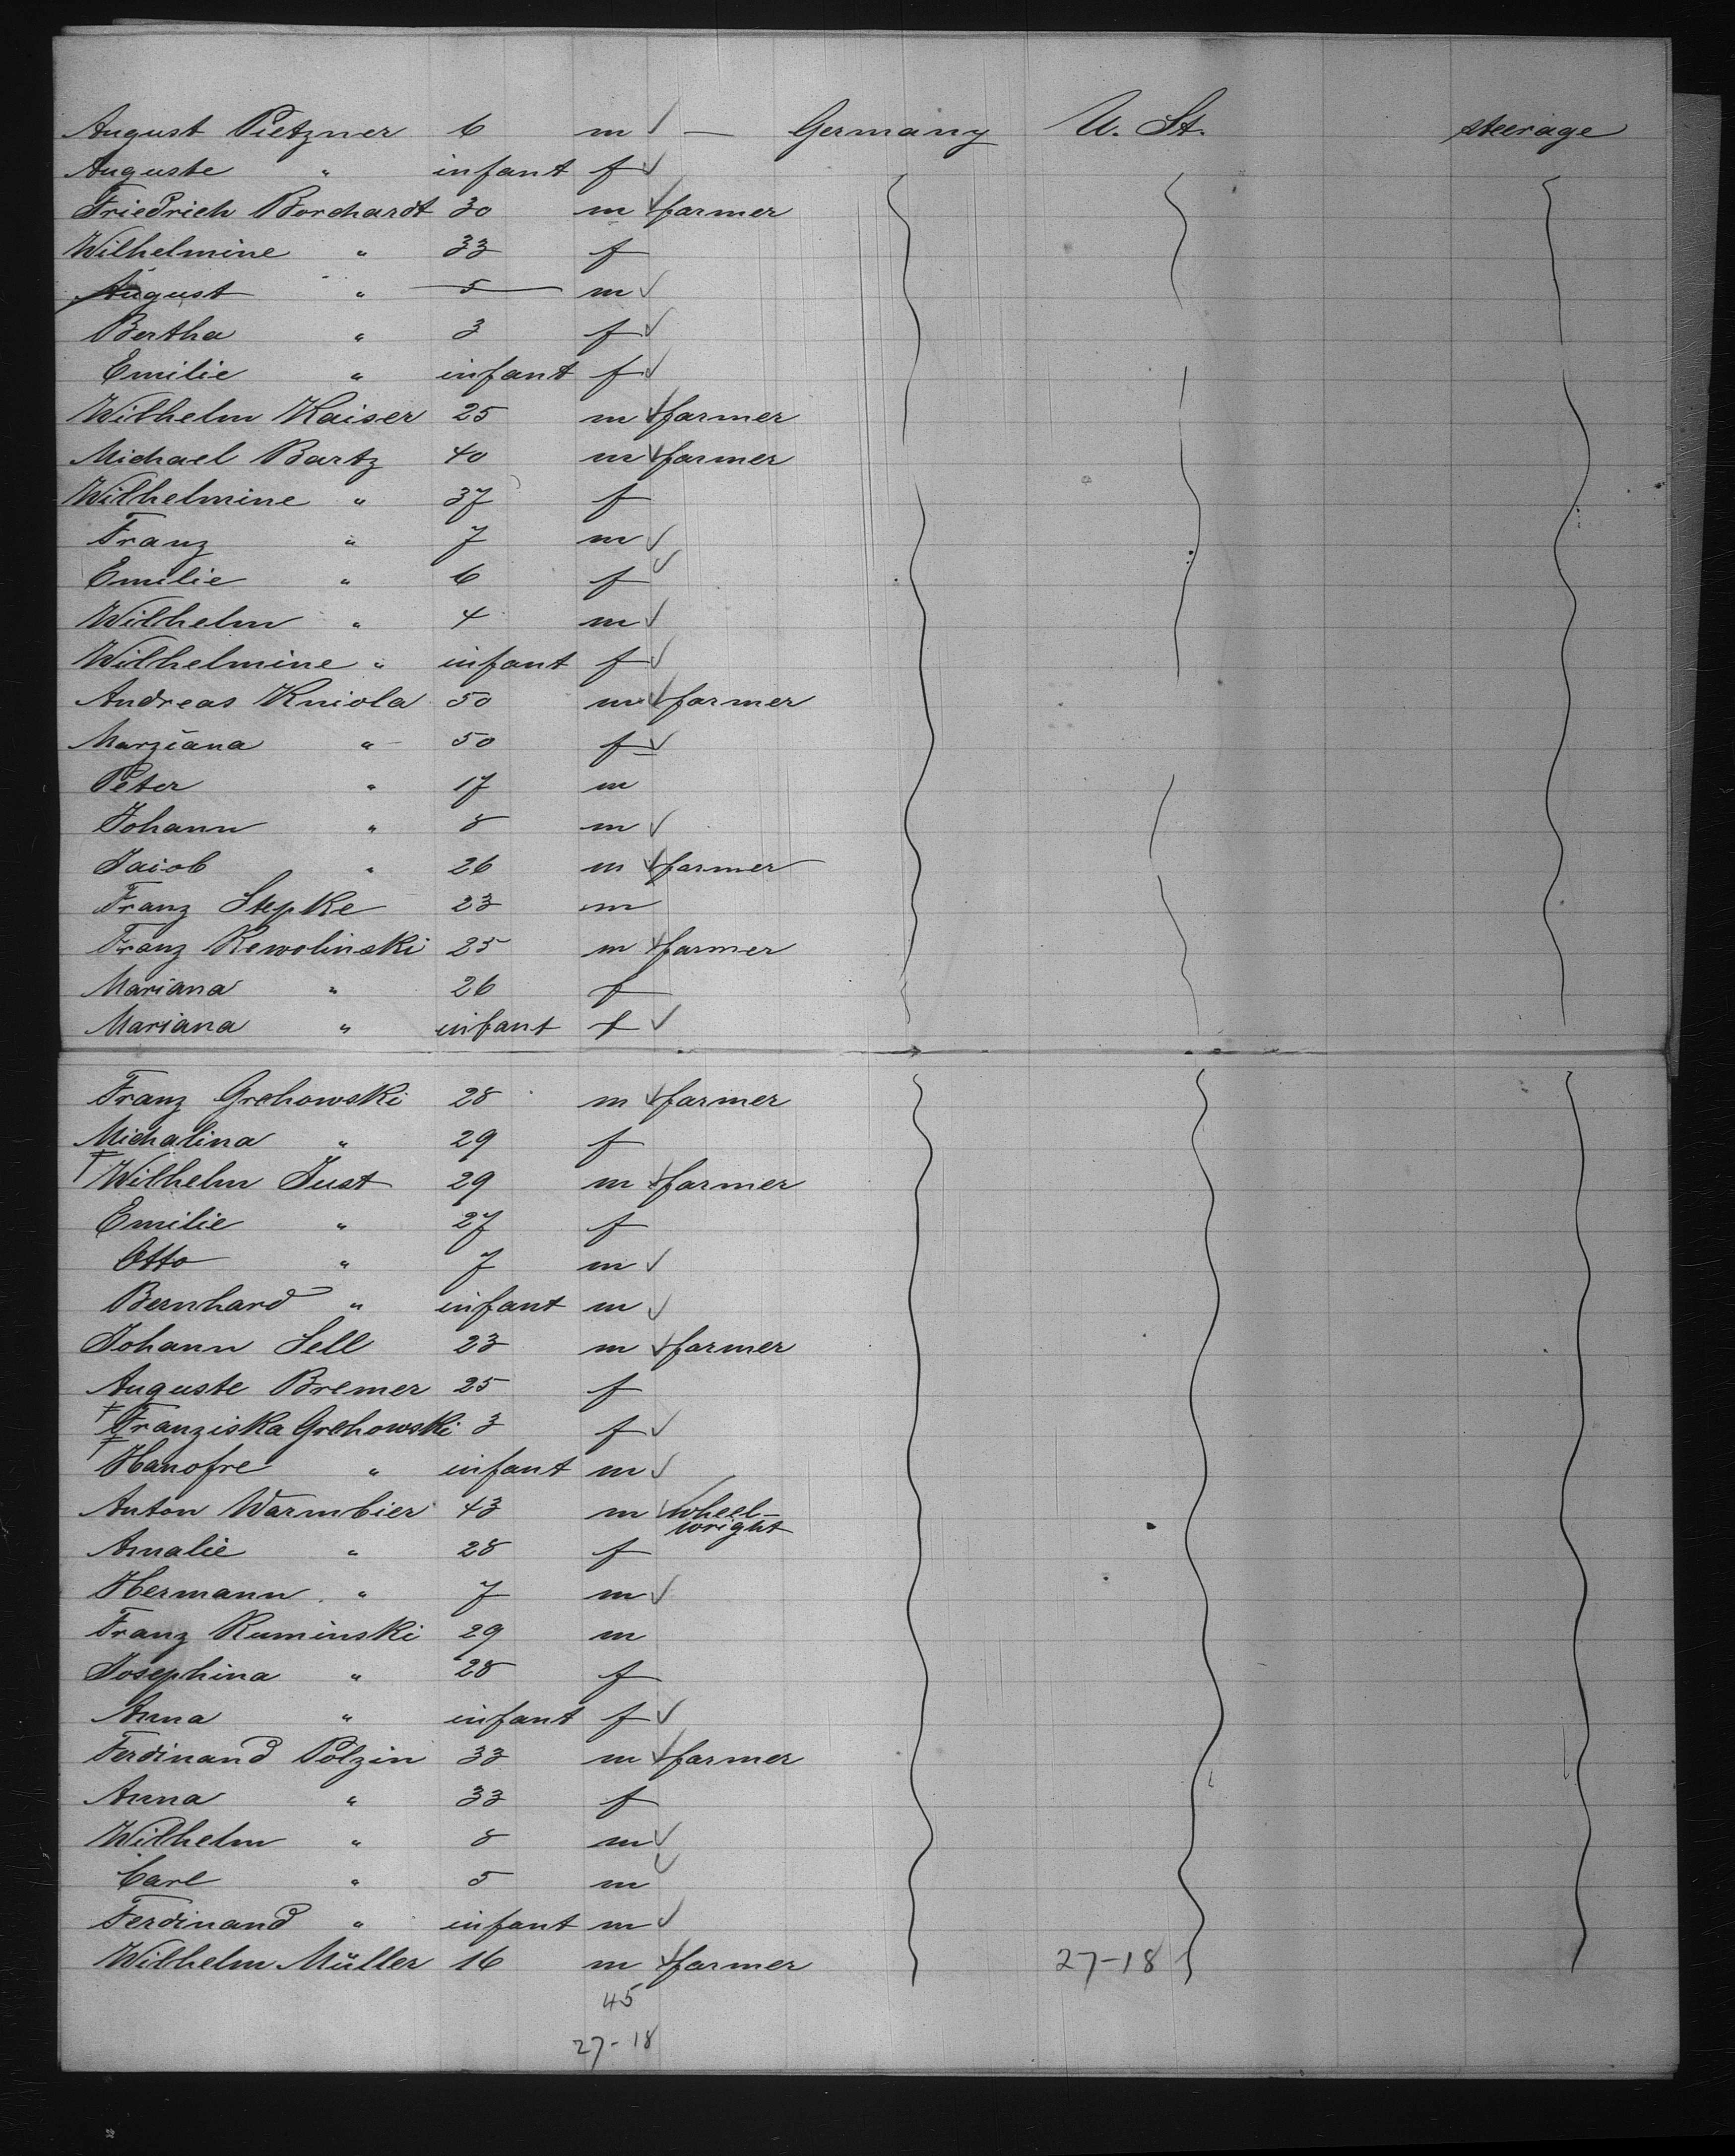 August Pietzner 6 m — Germany U. St. steerage
Auguste " infant f
Friedrich Borchardt 30 m farmer
Wilhelmine " 33 f
August " 5 m
Bertha " 3 f
Emilie " infant f
Wilhelm Kaiser 25 m farmer
Michael Bartz 40 m farmer
Wilhelmine " 37 f
Franz " 7 m
Emilie " 6 f
Wilhelm " 4 m
Wilhelmine " infant f
Andreas Kniola 50 m farmer
Marziana " 50 f
Peter " 17 m
Johann " 8 m
Jaiob " 26 m farmer
Franz Stepke 23 m
Franz Rewolinski 25 m farmer
Mariana " 26 f
Mariana " infant f
Franz Grchowski 28 m farmer
Michalina " 29 f
Wilhelm Just 29 m farmer
Emilie " 27 f
Otto " 7 m
Bernhard " infant m
Johann Sell 23 m farmer
Auguste Bremer 25 f
Franziska Grchowski 3 f
Hanofre " infant m
Anton Warmbier 43 m wheel-
wright
Amalie " 28 f
Hermann " 7 m
Franz Ruminski 29 m
Josephina " 28 f
Anna " infant f
Ferdinand Polzin 33 m farmer
Anna " 33 f
Wilhelm " 8 m
Carl " 5 m
Ferdinand " infant m
Wilhelm Müller 16 m farmer 27-18
45
27-18